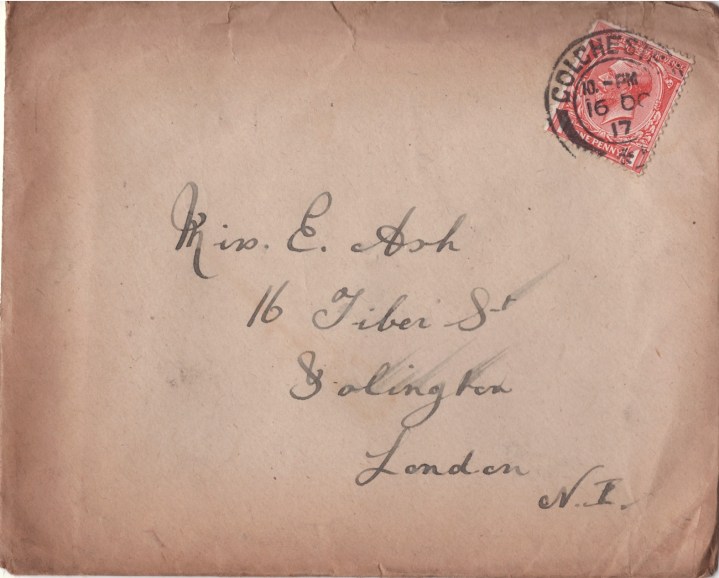 COLCHESTER
10.-PM
16 DC
17
ONE PENNY
Miss. E. Ash
16 Tiber St
Islington
London
N.I.